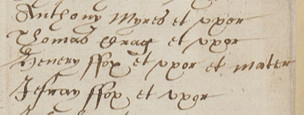 Anthony Myres et vxor
Thomas Wrag et vxor
Henery ffox et vxor et mater
Jefray ffox et vxor